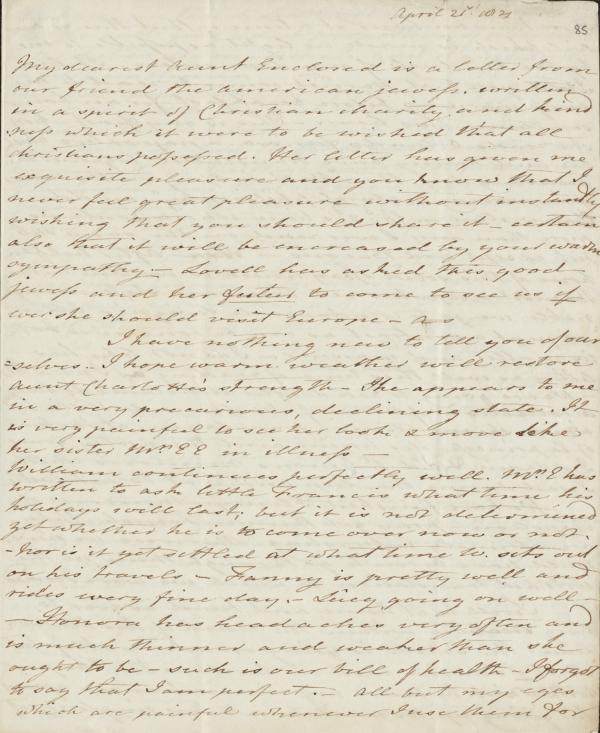 April 21st 1821
85
My dearest Aunt Enclosed is a letter from
our friend the american jewess. written
in a spirit of Christian charity and kind
ness which it were to be wished that all
christians possessed. Her letter has given me
exquisite pleasure and you know that I
never feel great pleasure without instantly
wishing that you should share it - certain
also that it will be encreased by your warm
sympathy - Lovell has asked this good
Jewess and her sister to come to see us if
ever she should visit Europe -
I have nothing new to tell you of our
=selves. I hope warm weather will restore
Aunt Charlotte's strength - She appears to me
in a very precarious, declining state. It
is very painful to see her look & move like
her sister Mrs E E in illness -
William continues perfectly well. Mrs E has
written to ask little Francis what time his
holidays will last; but it is not determined
yet whether he is to come over now or not.
- Nor is it yet settled at what time W. sets out
on his travels - Fanny is pretty well and
rides every fine day. - Lucy going on well -
- Honora has headaches very often and
is much thinner and weaker than she
ought to be - such is our bill of health - I forgot
to say that I am perfect. - all but my eyes
which are painful whenever I use them for